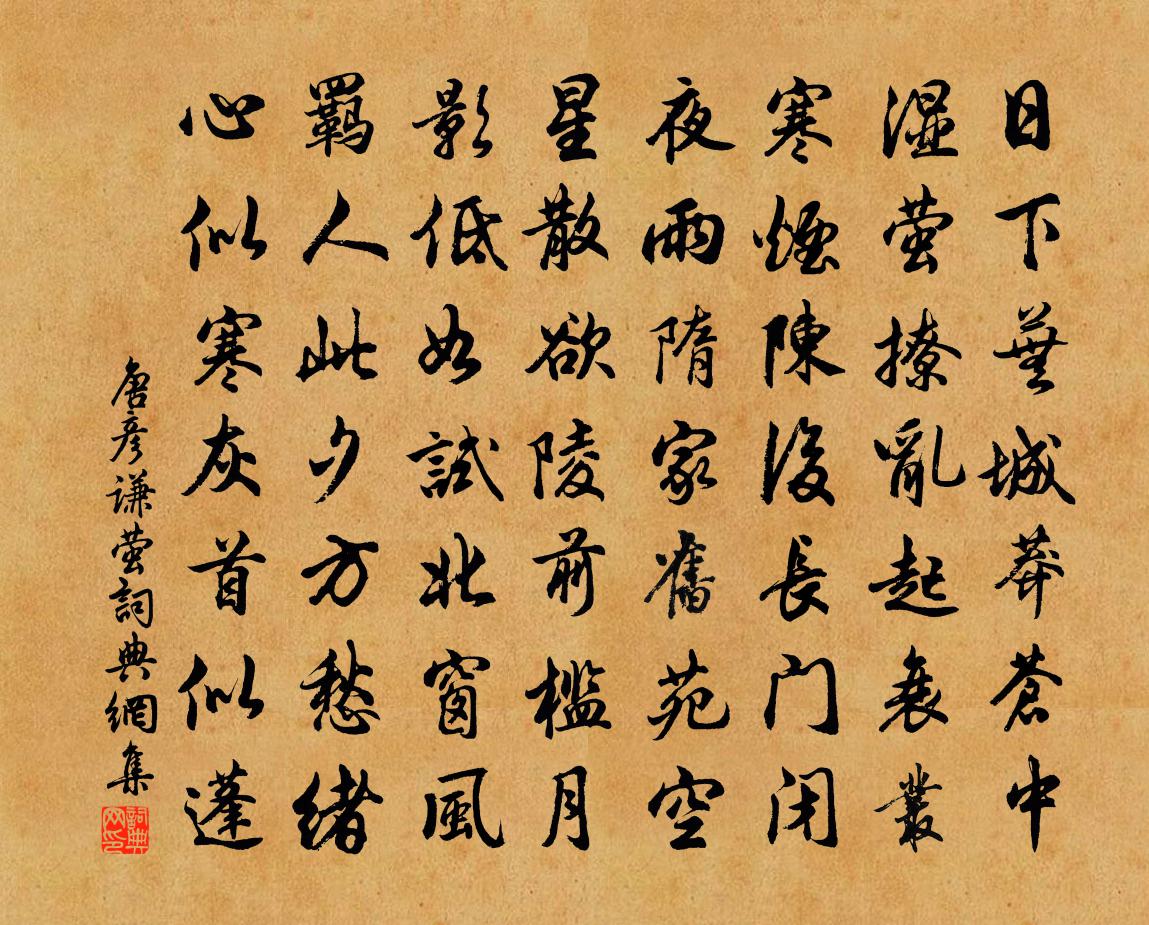 日下蕪城莽蒼中
湿萤撩亂起衰叢
寒煙陳後長门闭
夜雨隋家舊苑空
星散欲陵前檻月
影低如試北窗風
羈人此夕方愁緒
心似寒灰首似蓬
唐彦謙萤詞典網集
詞典网印